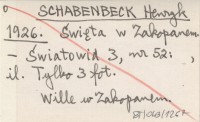 SCHABENBECK Henryk
1926. Święta w Zakopanem.
- Światowid 3, nr 52:    ,
il. Tylko 3 fot.
Wille w Zakopanem.